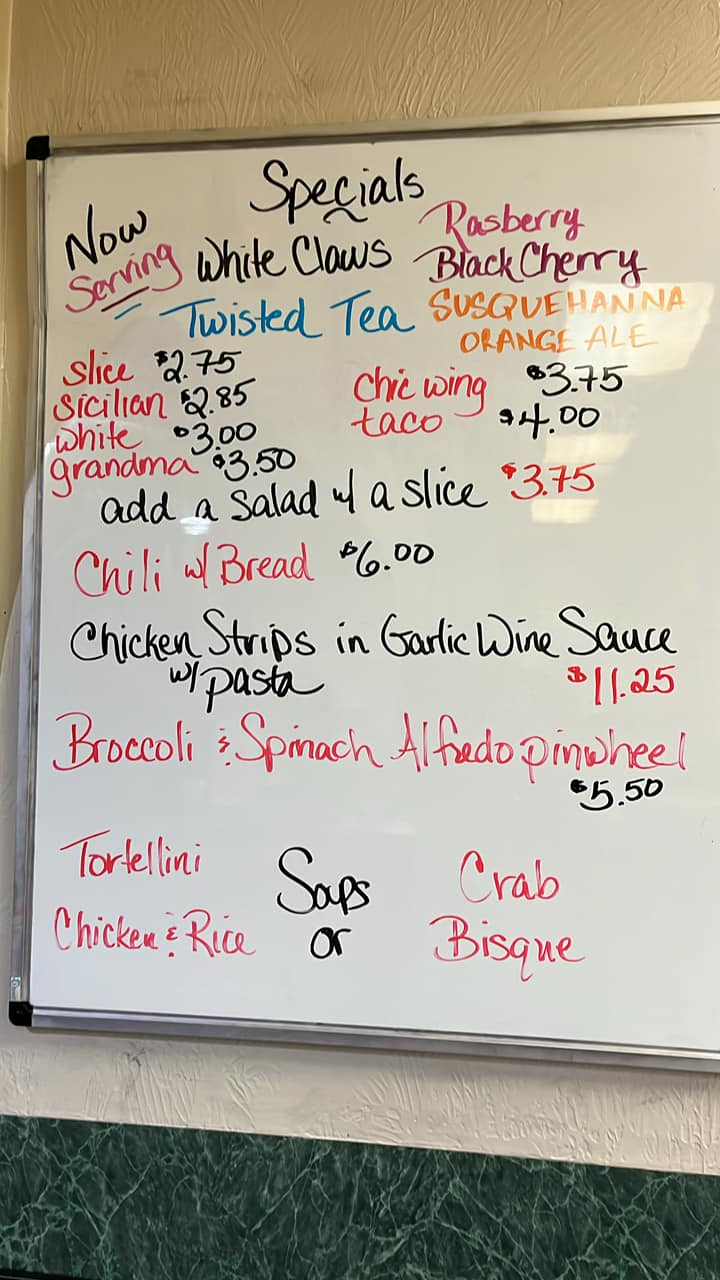 Specials
Now Serving White Claws Rasberry Black Cherry
Twisted Tea SUSQUEHANNA ORANGE ALE
slice $2.75
Sicilian $2.85
white $3.00
grandma $3.50
Chic wing $3.75
taco $4.00
add a Salad w/ a slice $3.75
Chili w/ Bread $6.00
Chicken Strips in Garlic Wine Sauce
w/ pasta $11.25
Broccoli & Spinach Alfredo pinwheel
$5.50
Soups
Tortellini
Chicken & Rice or Crab Bisque